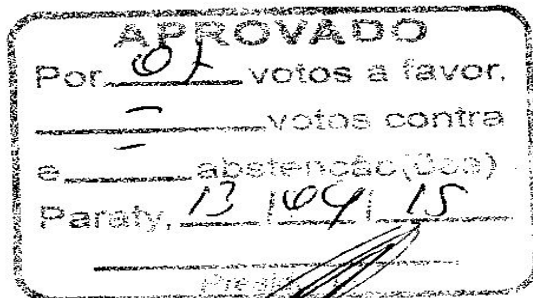 APROVADO
Por 07 votos a favor,
- votos contra
e - abstenção(ões)
Paraty, 13 / 04 / 15